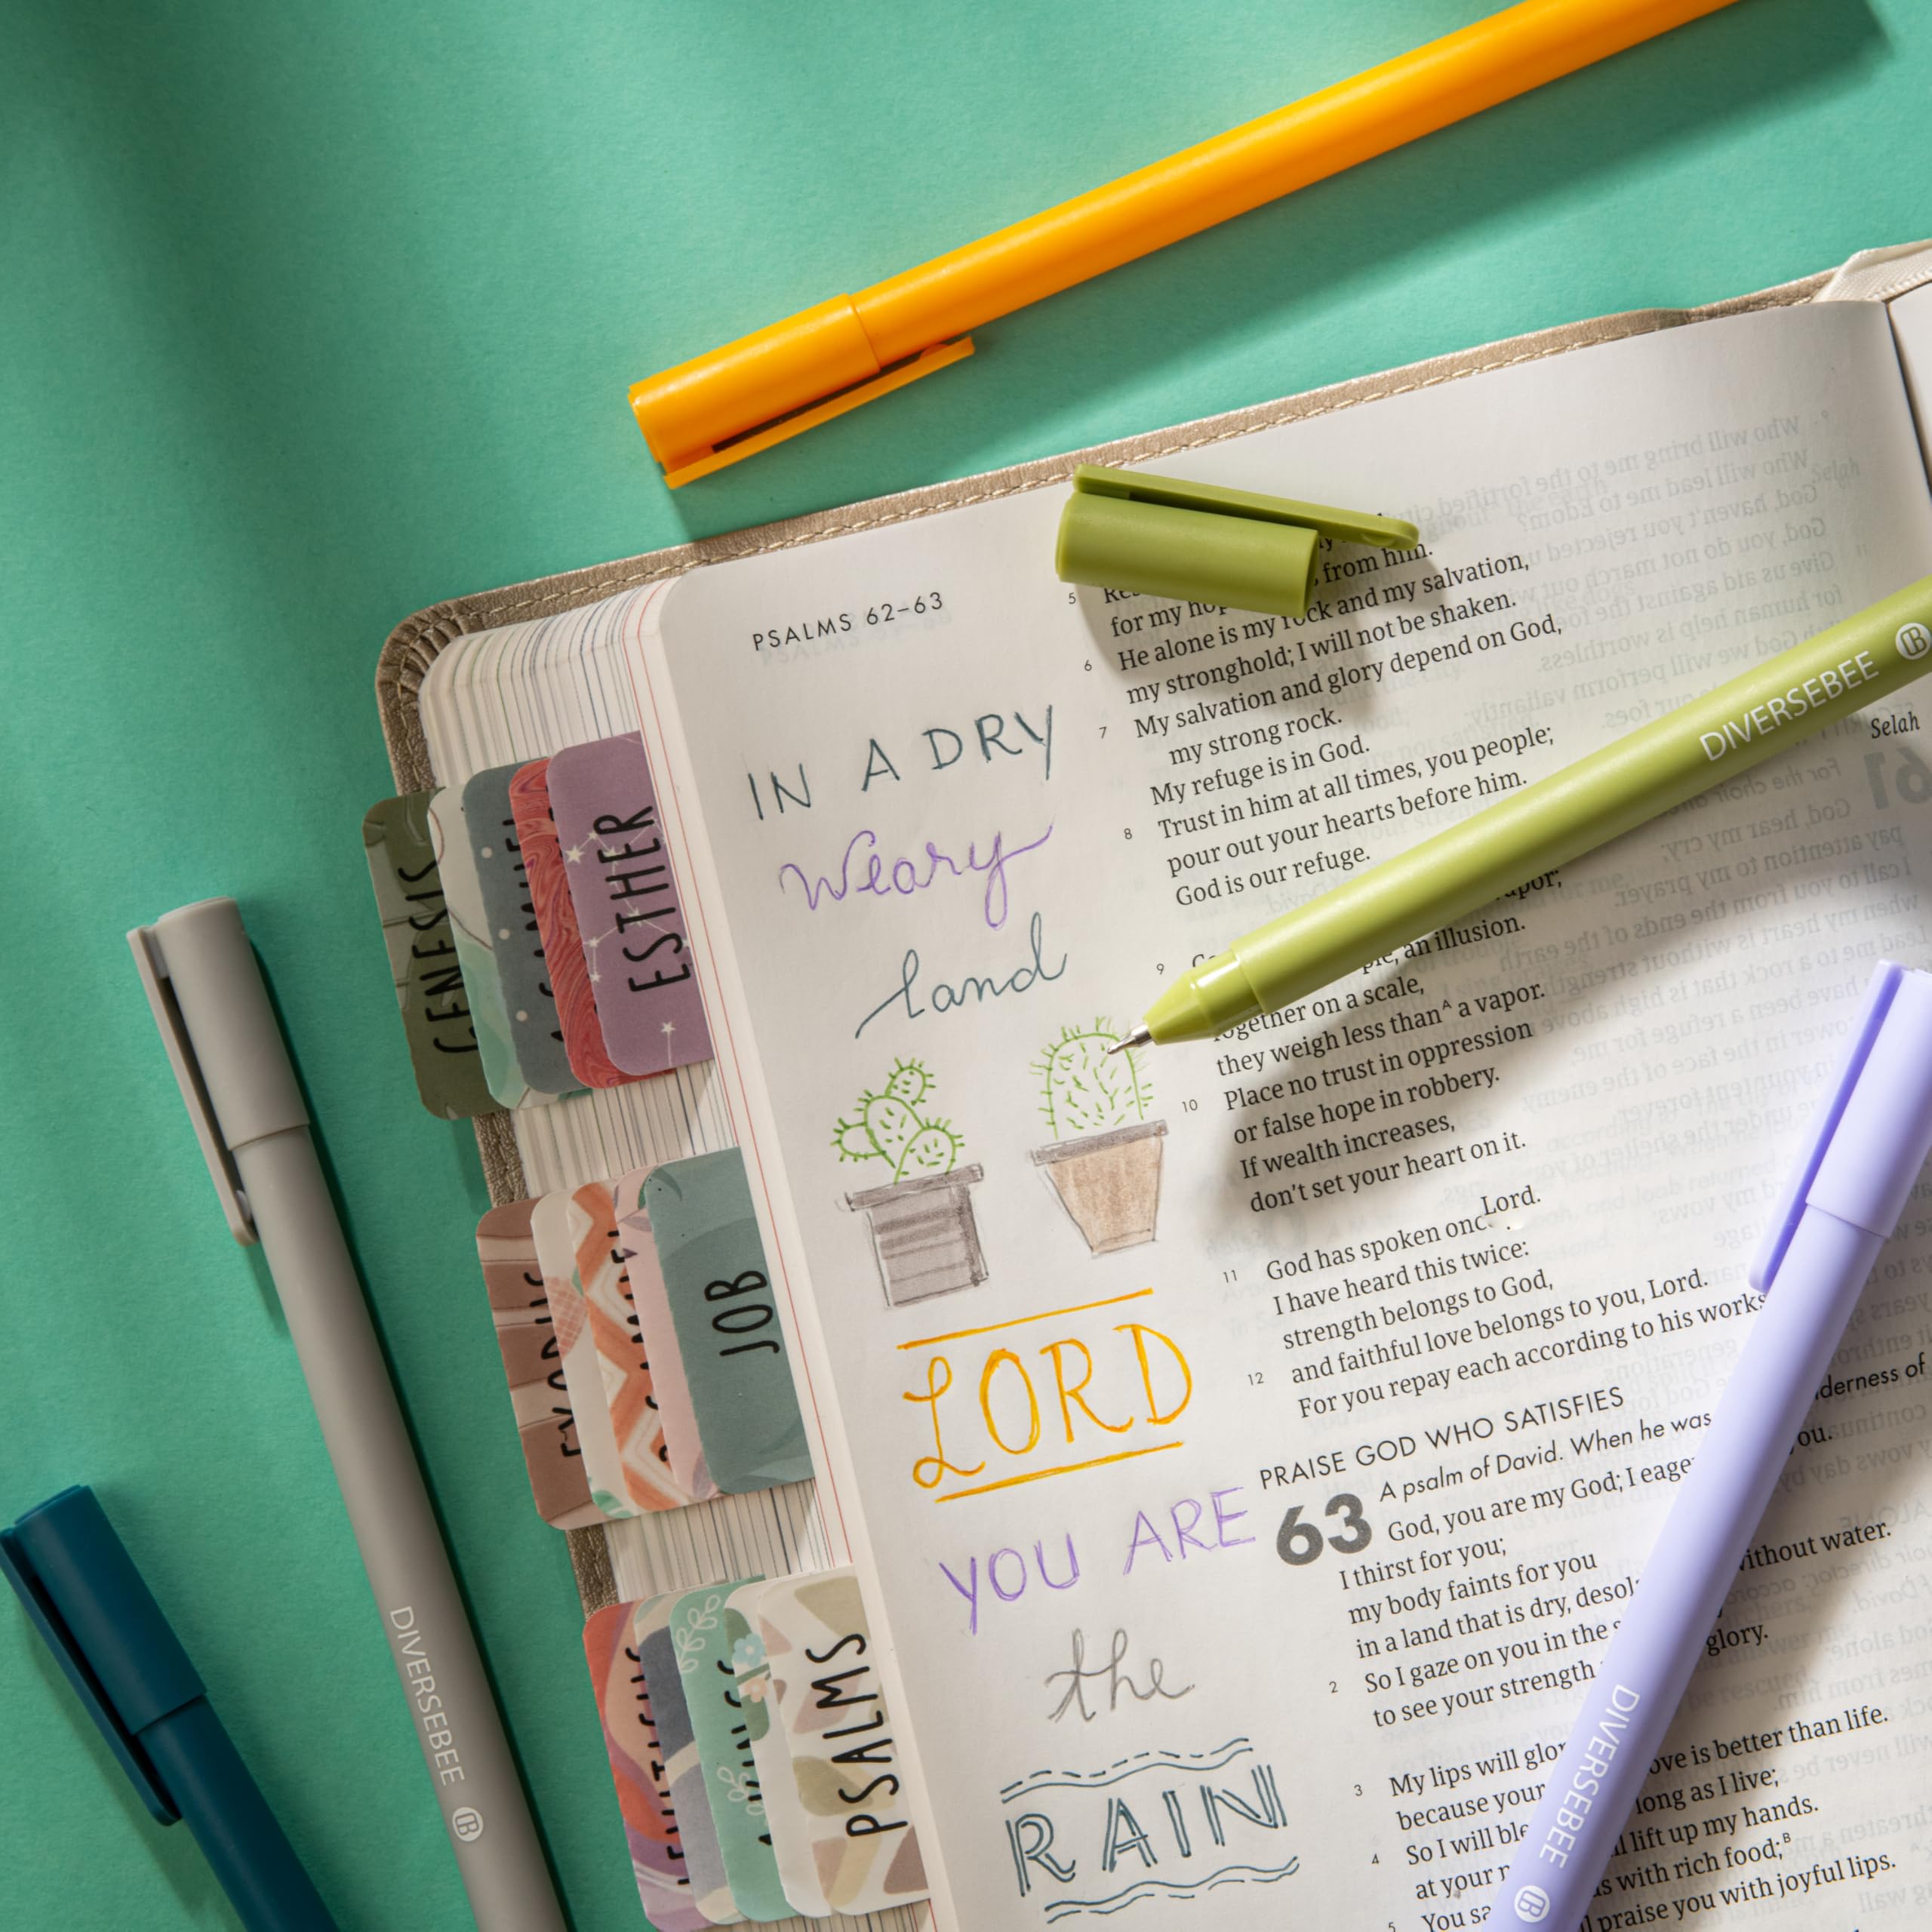 PSALMS 62–63
IN A DRY
Weary
land
LORD
YOU ARE
the
RAIN
GENESIS
ESTHER
JOB
PSALMS
DIVERSEBEE
DIVERSEBEE
DIVERSEBEE
from him.
5
for my
6 He alone is my rock and my salvation,
my stronghold; I will not be shaken.
7 My salvation and glory depend on God,
my strong rock.
My refuge is in God.
8 Trust in him at all times, you people;
pour out your hearts before him.
God is our refuge.
Selah
9
an illusion.
on a scale,
they weigh less than A a vapor.
10 Place no trust in oppression
or false hope in robbery.
If wealth increases,
don't set your heart on it.
11 God has spoken
Lord.
I have heard this twice:
strength belongs to God,
12 and faithful love belongs to you, Lord.
For you repay each according to his works
PRAISE GOD WHO SATISFIES
A psalm of David. When he was
of
63 God, you are my God; I
I thirst for you;
my body faints for you
in a land that is dry,
without water.
2 So I gaze on you in the
to see your strength
glory.
3 My lips will
because your
is better than life.
4 So I will
long as I live;
at your
lift up my hands.
5 You
with rich food; B
praise you with joyful lips.